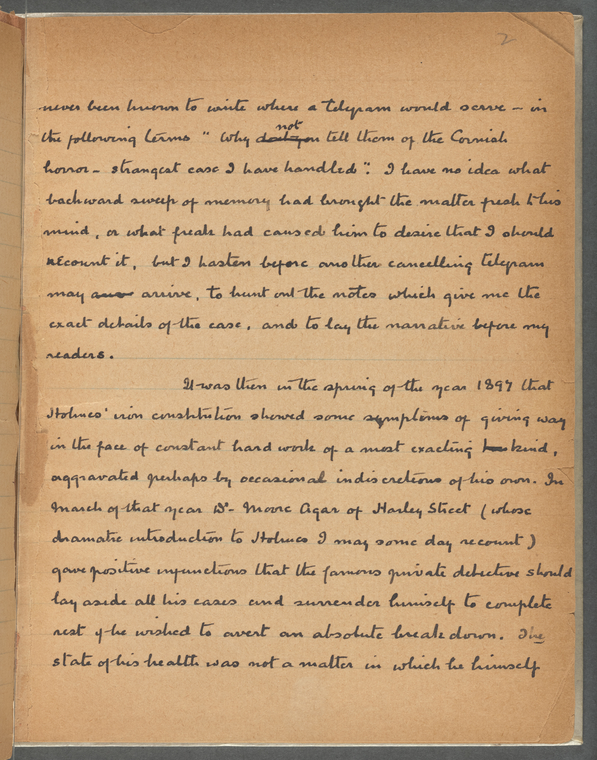 2
never been known to write where a telegram would serve – in
the following terms "Why not tell them of the Cornish
horror – strangest case I have handled". I have no idea what
backward sweep of memory had brought the matter fresh to his
mind, or what freak had caused him to desire that I should
recount it, but I hasten before another cancelling telegram
may arrive, to hunt out the notes which give me the
exact details of the case, and to lay the narrative before my
readers.
It was then in the spring of the year 1897 that
Holmes' iron constitution showed some symptoms of giving way
in the face of constant hard work of a most exacting kind,
aggravated perhaps by occasional indiscretions of his own. In
March of that year Dr- Moore Agar of Harley Street (whose
dramatic introduction to Holmes I may some day recount)
gave positive injunctions that the famous private detective should
lay aside all his cases and surrender himself to complete
rest if he wished to avert an absolute breakdown. The
state of his health was not a matter in which he himself